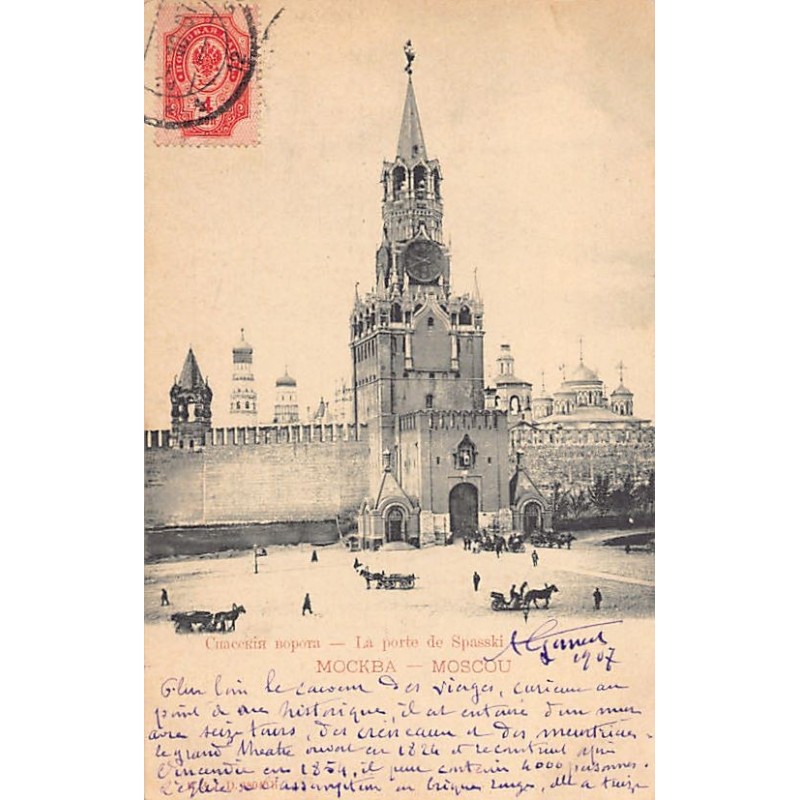 ПОЧТОВАЯ МАРКА
Спасскія ворота — La porte de Spasski
1907
МОСКВА — MOSCOU
Plus loin le couvent des vierges, curieux au
point de vue historique, il est entouré d'un mur
avec seize tours, des créneaux et des meurtrières.
le grand théâtre ouvert en 1824 et reconstruit après
l'incendie en 1854, il peut contenir 4000 personnes.
l'Eglise de l'assomption en briques rouges, elle a treize